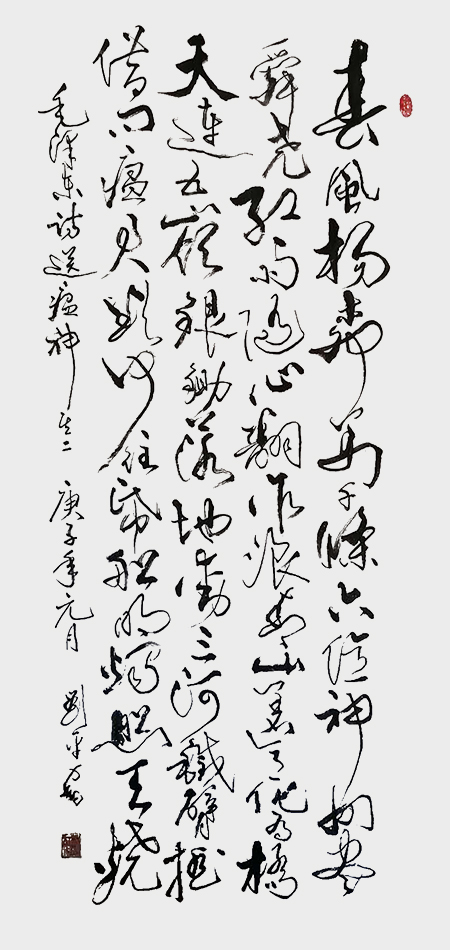 春風楊柳萬千條六億神州盡
舜堯紅雨隨心翻作浪青山着意化為橋
天連五嶺銀鋤落地動三河鐵臂摇
借问瘟君欲何往紙船明燭照天燒
毛澤東詩送瘟神其二 庚子年元月 劉平